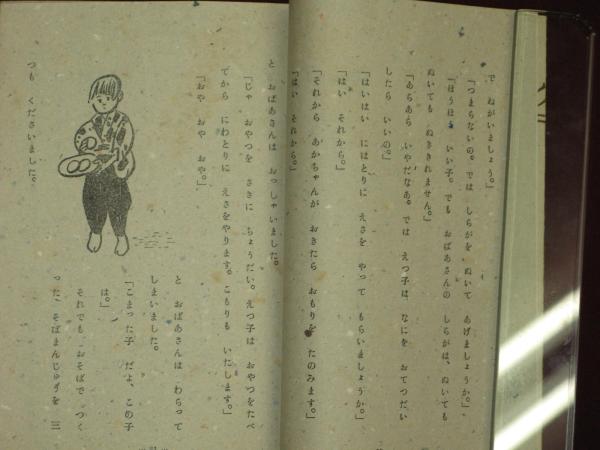 で ねがいましょう。」
「つまらないの。では しらがを ぬいて あげましょうか。」
「ほうほう いい子。でも おばあさんの しらがは、ぬいても
ぬいても ぬききれません。」
「あらあら いやだなあ。では えつ子は なにを おてつだい
したら いいの。」
「はいはい にはとりに えさを やって もらいましょうか。」
「はい それから。」
「それから あかちゃんが おきたら おもりを たのみます。」
「はい それから。」
と おばあさんは おっしゃいました。
「じゃ おやつを さきに ちょうだい。えつ子は おやつをたべ
てから にわとりに えさをやります。こもりも いたします。」
「おや おや おや。」
と おばあさんは わらって
しまいました。
「こまった子 だよ、この子
は。」
それでも おそばで つく
った、そばまんじゅうを 三
つも くださいました。